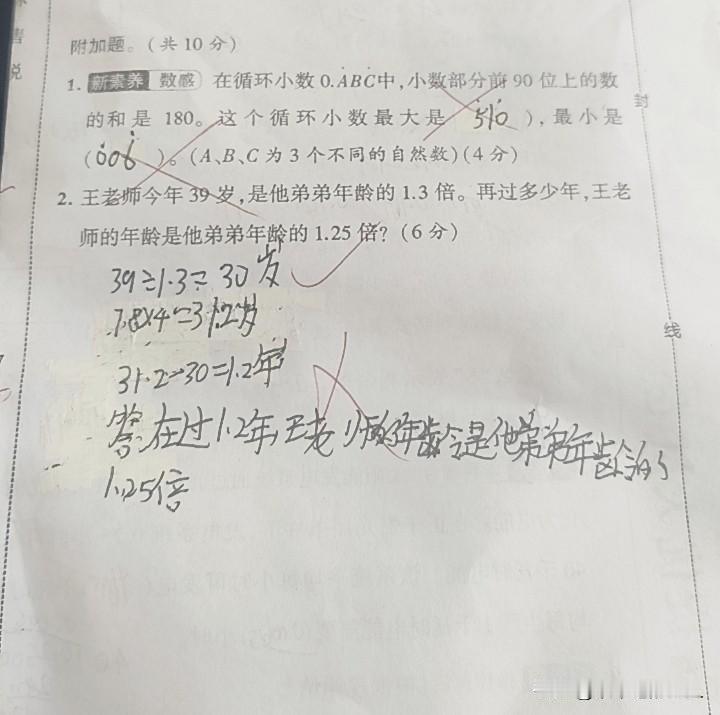 附加题。(共 10 分)
1. 新素养 数感 在循环小数 0.ȦBĊ中,小数部分前 90 位上的数
的和是 180。这个循环小数最大是 510 ),最小是
(006)。(A、B、C 为 3 个不同的自然数)(4 分)
2. 王老师今年 39 岁,是他弟弟年龄的 1.3 倍。再过多少年,王老
师的年龄是他弟弟年龄的 1.25 倍? (6 分)
39÷1.3=30岁
7.8×4=31.2岁
31.2-30=1.2年
答:在过1.2年,王老师的年龄是他弟弟年龄的
1.25倍
封
线